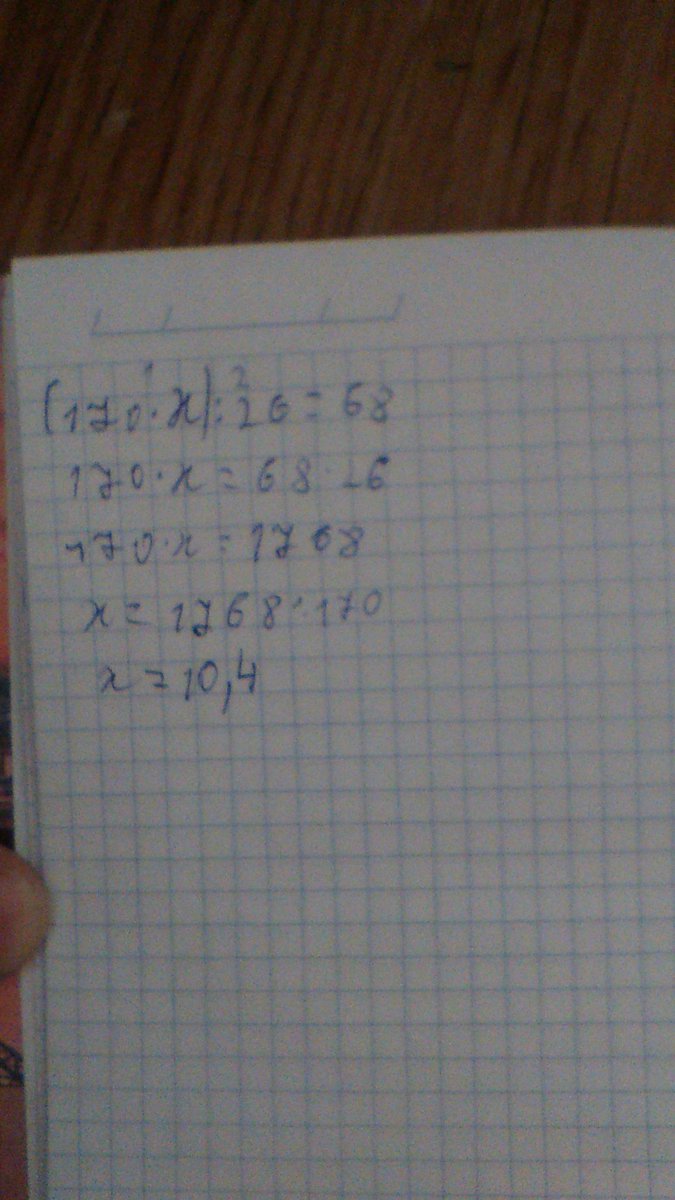 1 2
(170·x):26=68
170·x=68·26
170·x=1768
x=1768:170
x=10,4